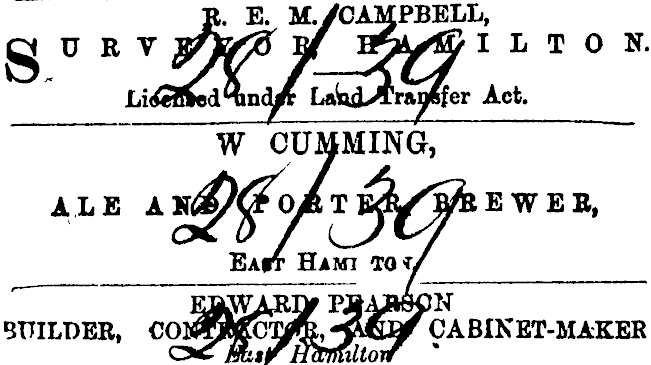 R. E. M. CAMPBELL,
SURVEYOR, HAMILTON.
Licensed under Land Transfer Act.
28/39
W CUMMING,
ALE AND PORTER BREWER,
28/39
EAST HAMI TON.
EDWARD PEARSON
BUILDER, CONTRACTOR, AND CABINET-MAKER
28/39
East Hamilton